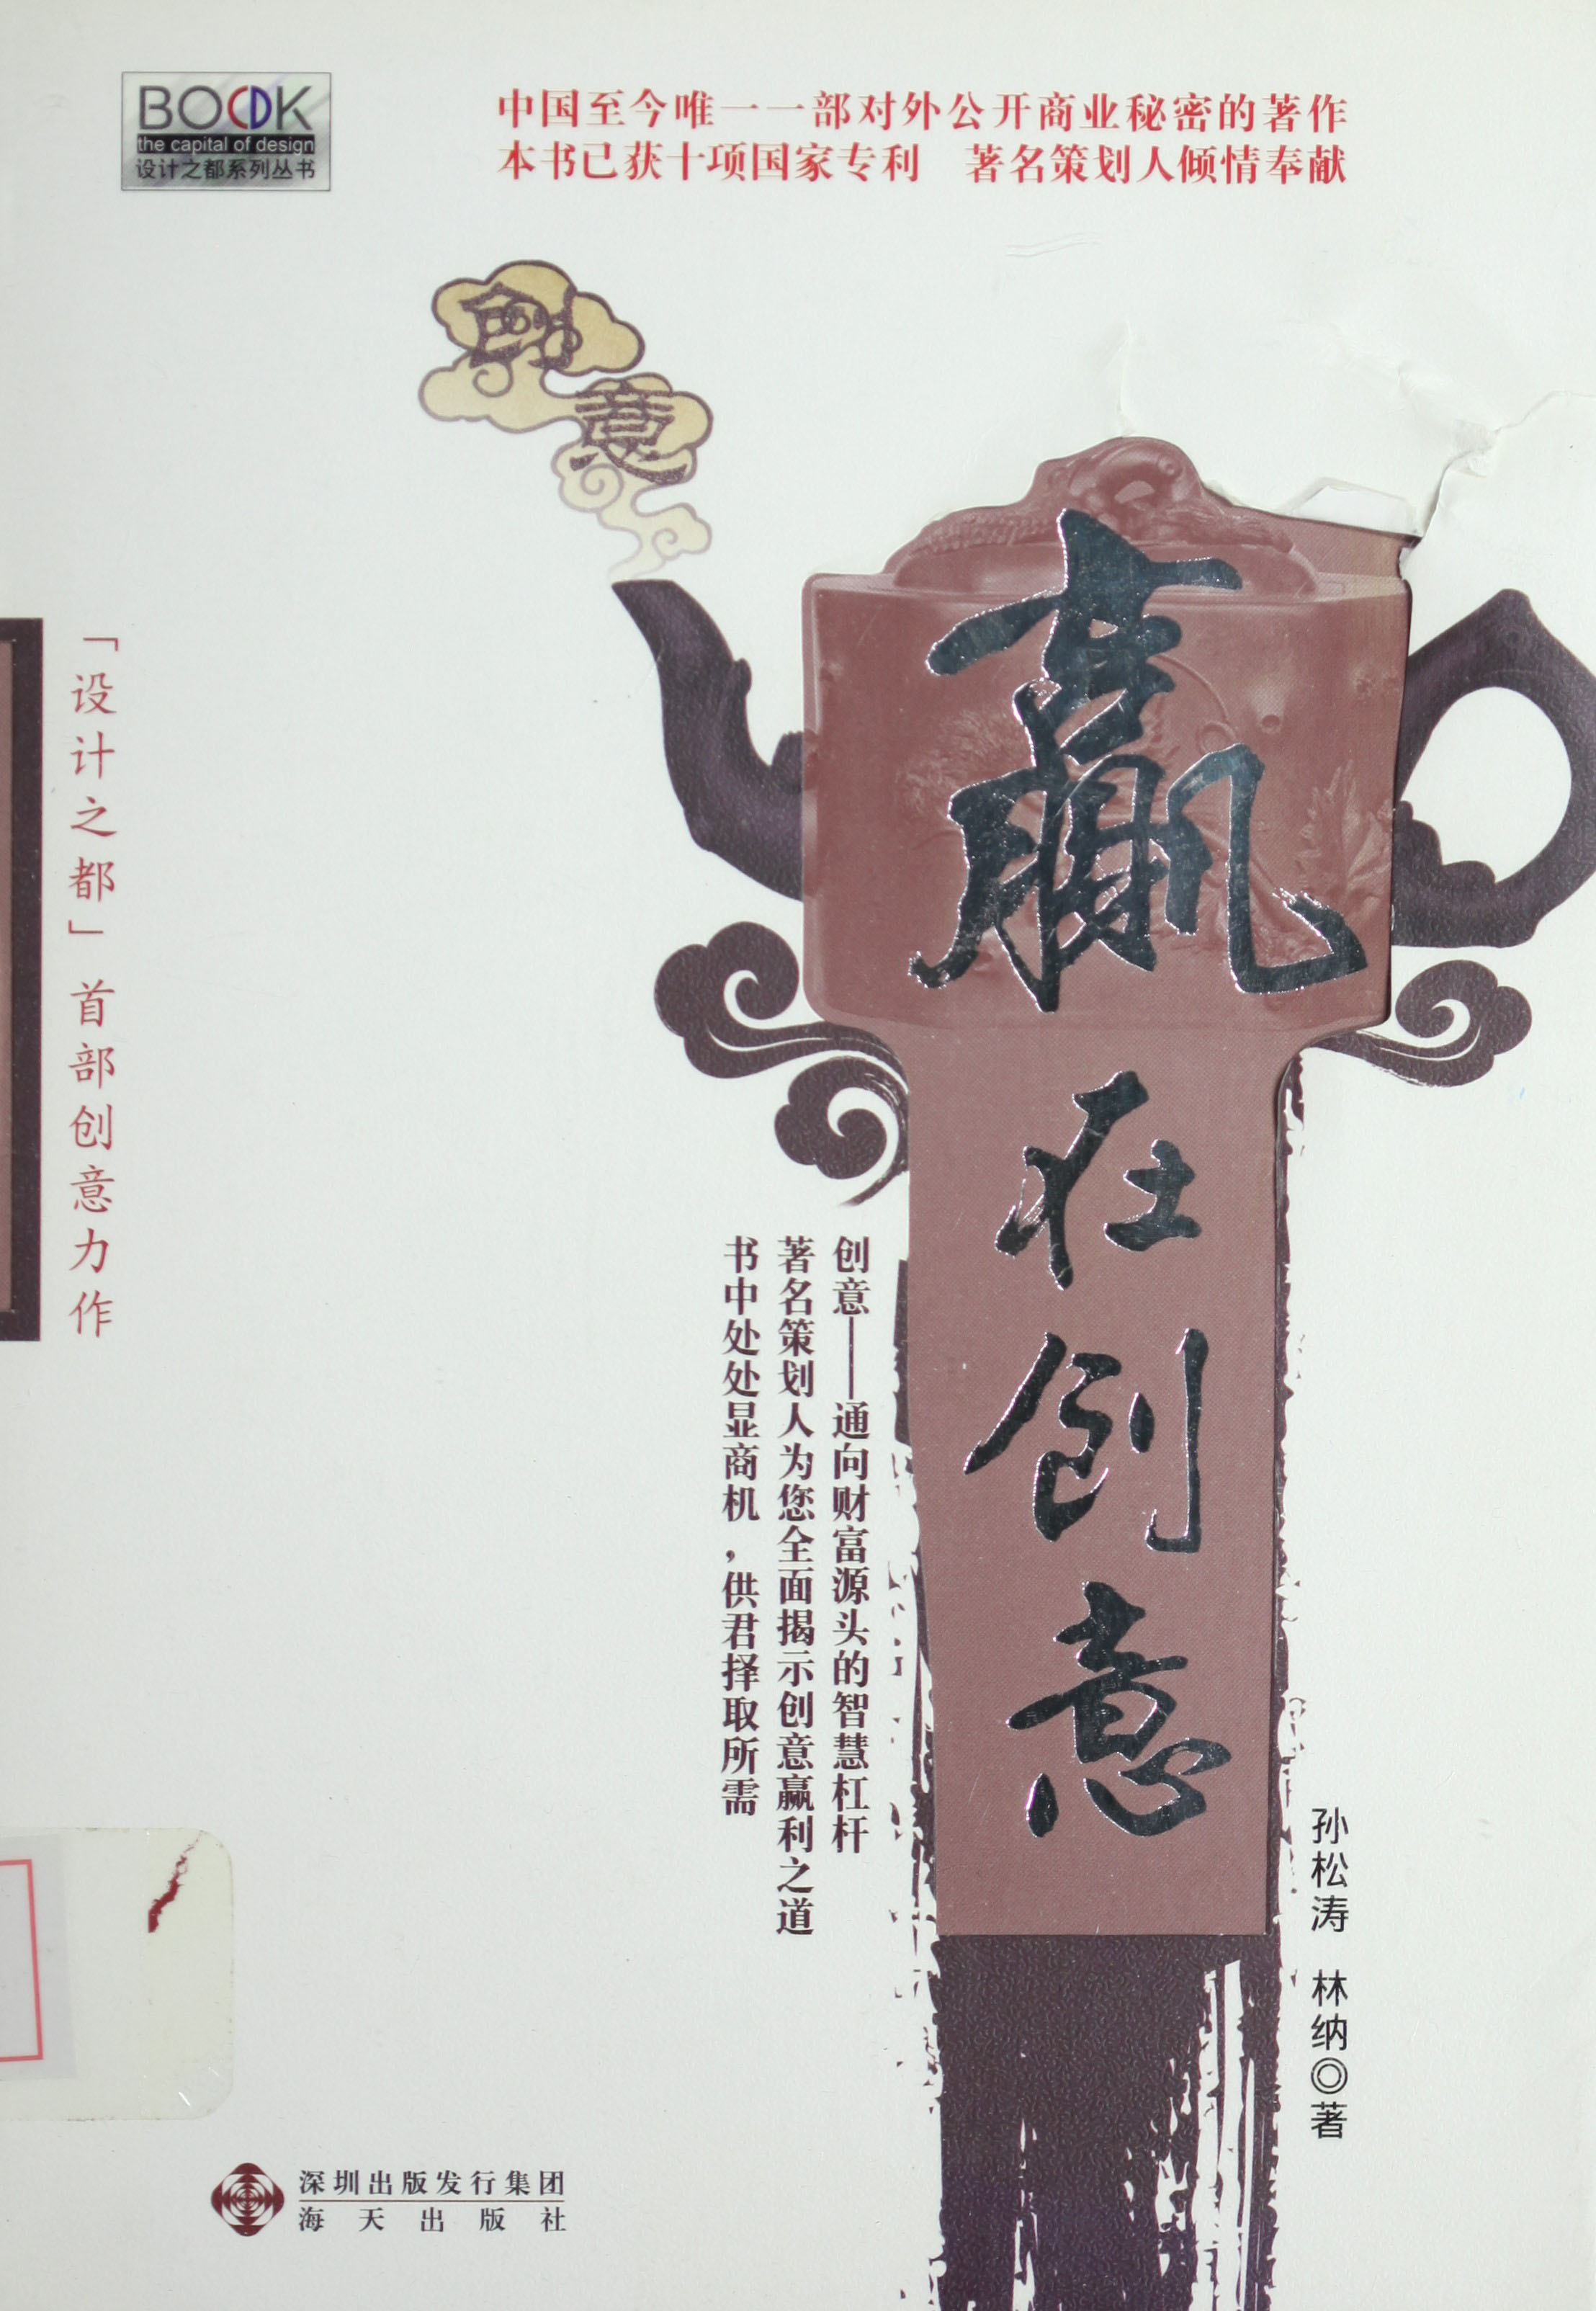 BOCDK
the capital of design
设计之都系列丛书
中国至今唯一一部对外公开商业秘密的著作
本书已获十项国家专利　著名策划人倾情奉献
创意
赢在创意
「设计之都」首部创意力作
创意——通向财富源头的智慧杠杆
著名策划人为您全面揭示创意赢利之道
书中处处显商机，供君择取所需
孙松涛　林纳◎著
深圳出版发行集团
海天出版社